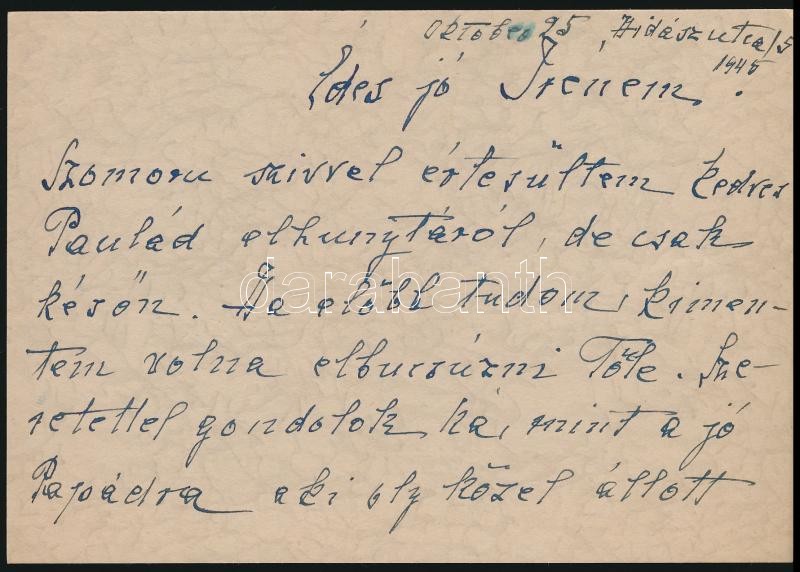 Október 25, Hidászutca/5
1945
Édes jó Irenem.
Szomoru szivvel értesültem kedves
Paulád elhunytáról, de csak
későn. Ha előbb tudom, kimen-
tem volna elbucsúzni Tőle. Sze-
retettel gondolok Rá, mint a jó
Papádra aki oly közel állott
darabanth.com